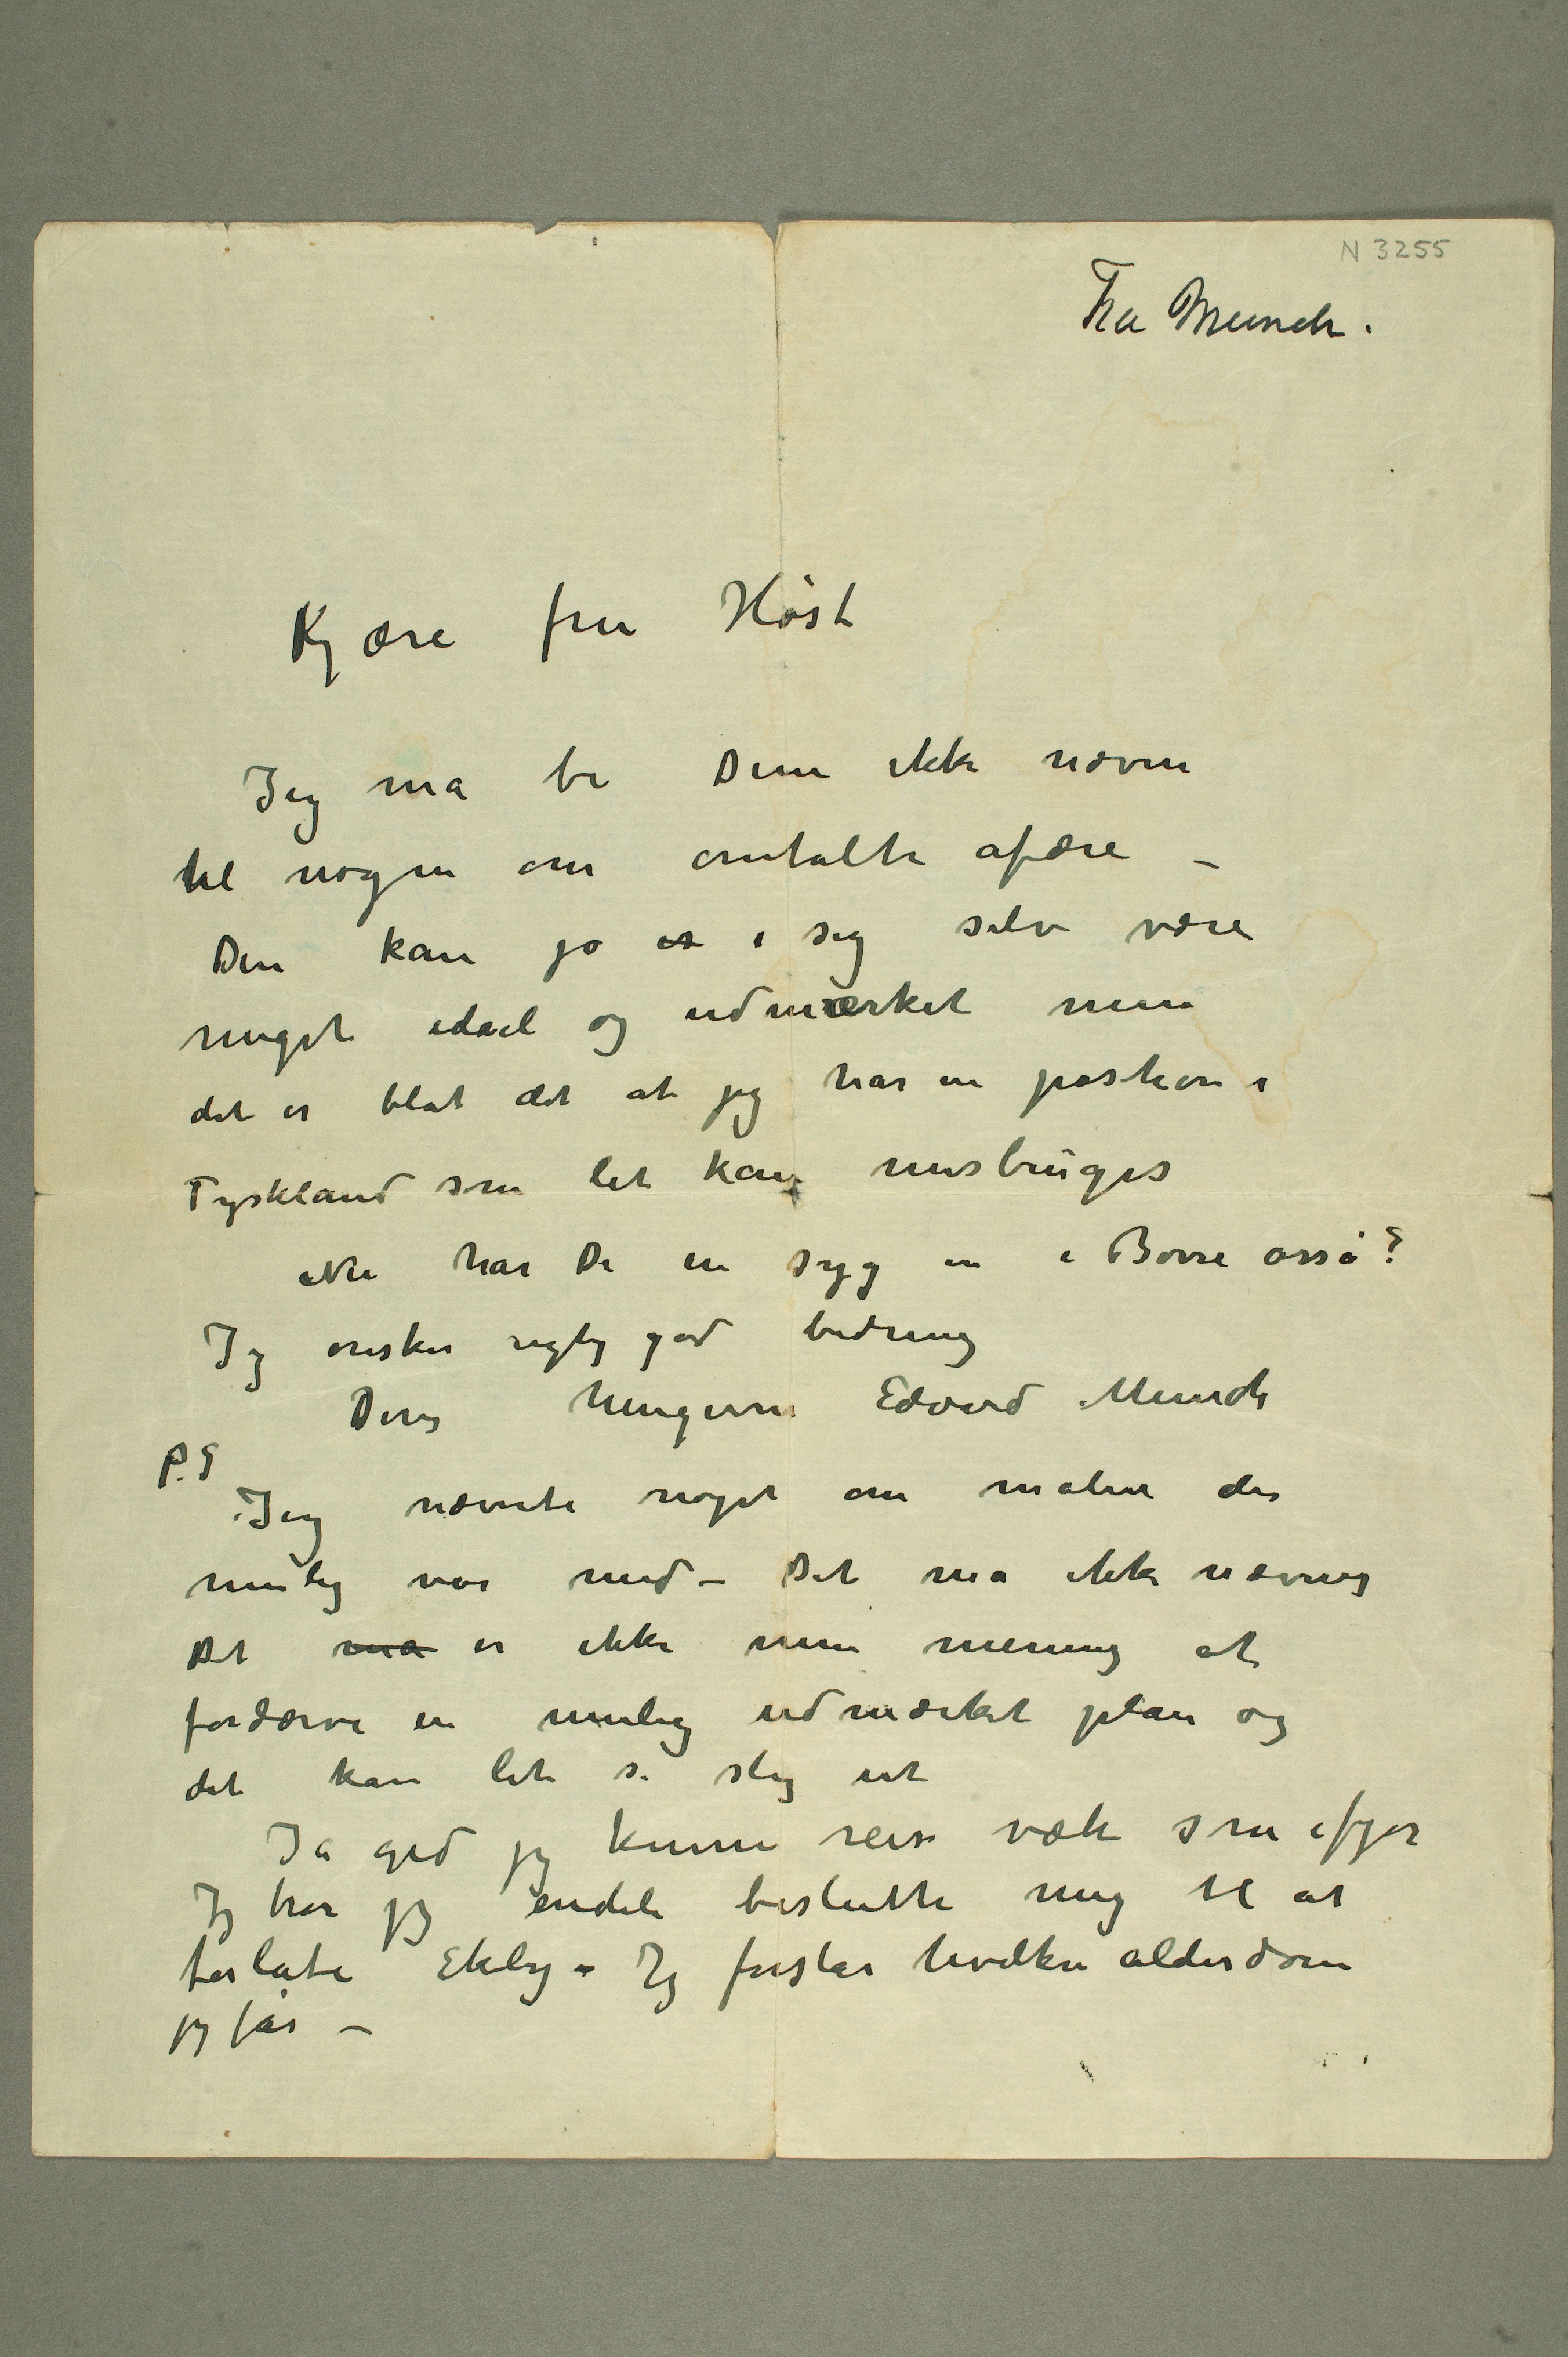 N 3255
Fra Munch.
Kjære fru Høst
Jeg må be Dem ikke nævne
til nogen om omtalte afære –
Den kan jo i sig selv være
meget ideel og udmærket men
det er blot det at jeg har en position i
Tyskland som let kan misbruges
Nu har De en syg en i Borre osså?
Jeg ønsker rigtig god bedring
Deres hengivne Edvard Munch
P.S
Jeg nævnte noget om malere der
mulig var med – Det må ikke nævnes
Det må er ikke min mening at
fordærve en mulig udmærket plan og
det kan let se slig ut
Ja gid jeg kunne reise væk som ifjor
Jeg tror jeg endeli beslutte mig til at
forlate Ekely – Jeg forstår hvilken alderdom
jeg får –